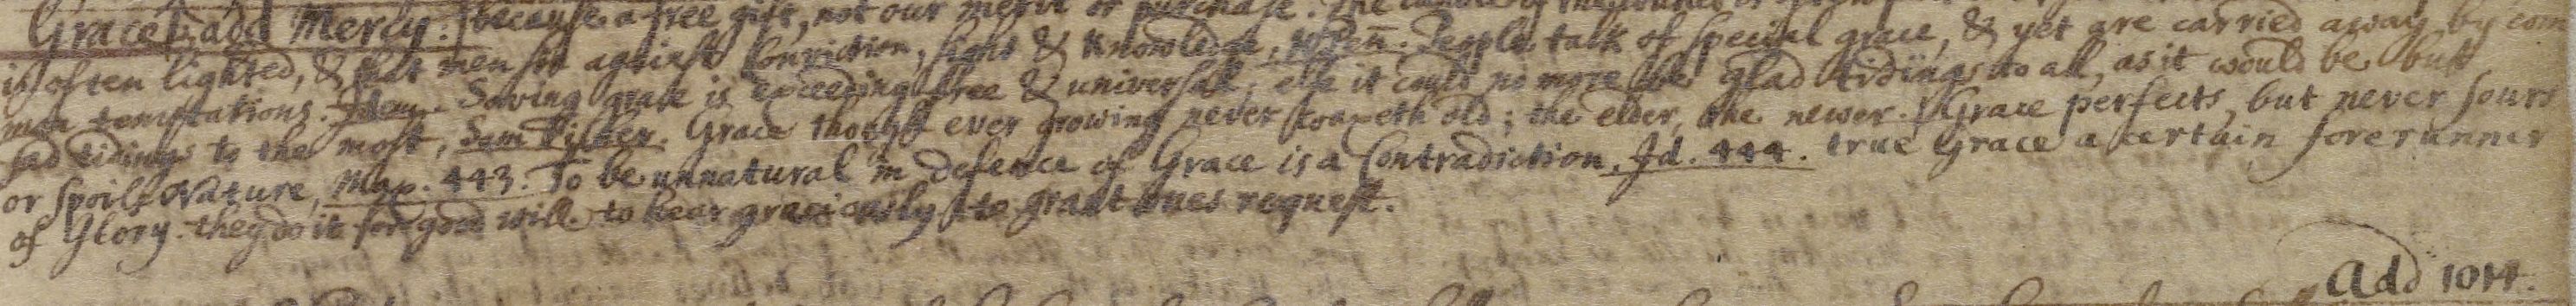 Grace] add Mercy: because a free gift, not our merit or purchase. The candle of
is often lighted, & that men sin against Conviction, light & Knowledge, W. Pen. People talk of special grace, & yet are carried away by com
mon temptations. Idem. Saving grace is exceeding free & universal, else it could no more be glad tidings to all, as it would be but
sad tidings to the most, Sam Fisher. Grace though ever growing never waxeth old; the elder, the newer. Grace perfects, but never sours
or spoils Nature, Map. 443. To be unnatural in defence of Grace is a Contradiction, Id. 444. true Grace a certain forerunner
of Glory. they do it for good will. to hear graciously to grant ones request.
add 1014.